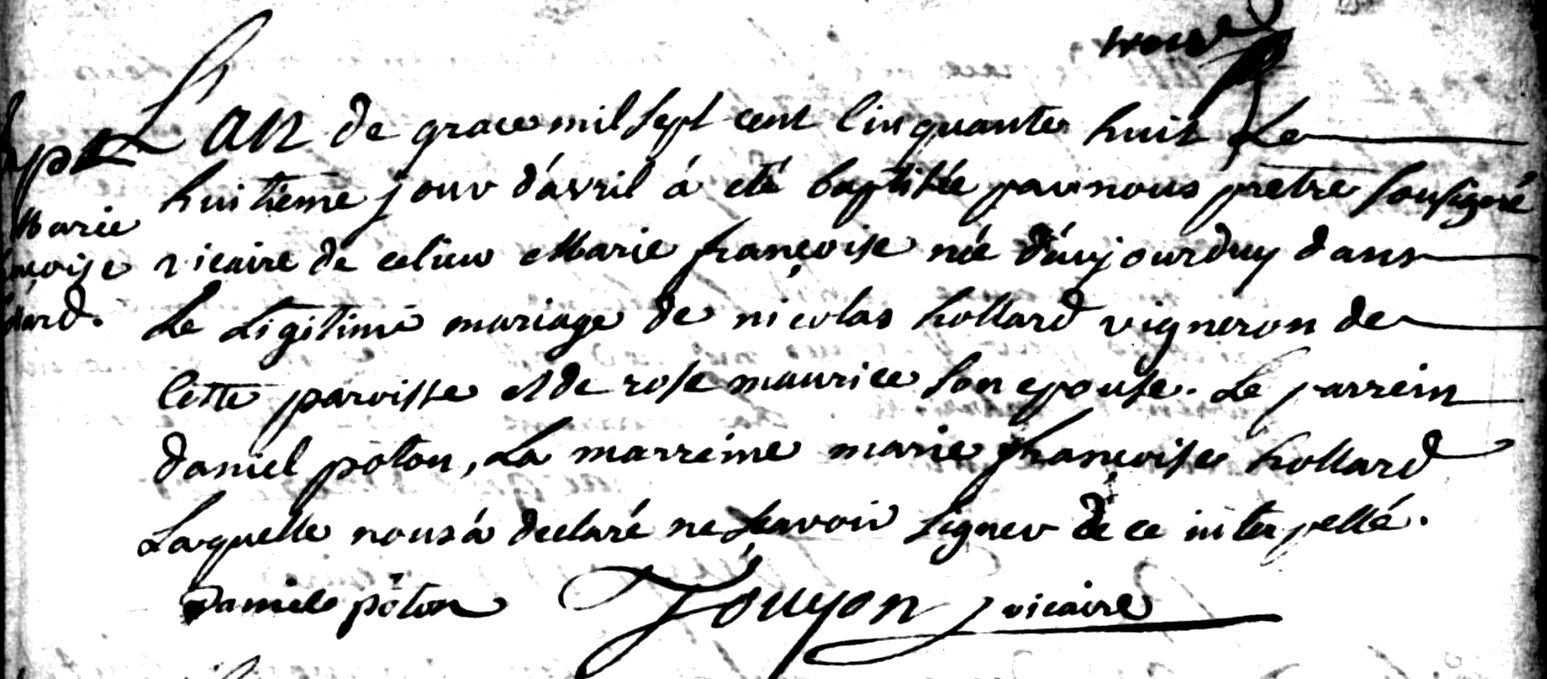 L'an de grace mil sept cent cinquante huit Le
huitieme jour d'avril á eté baptisée par nous pretre sousigné
Marie
vicaire de ce lieu Marie françoise née d'aujourduy dans
Le Legitime mariage de nicolas hollard vigneron de
cette paroisse et de rose maurice son epouse. Le parrein
daniel poton, La marreine marie françoise hollard
Laquelle nous á declaré ne sçavoir signer de ce interpellé.
Daniele pôton
vicaire